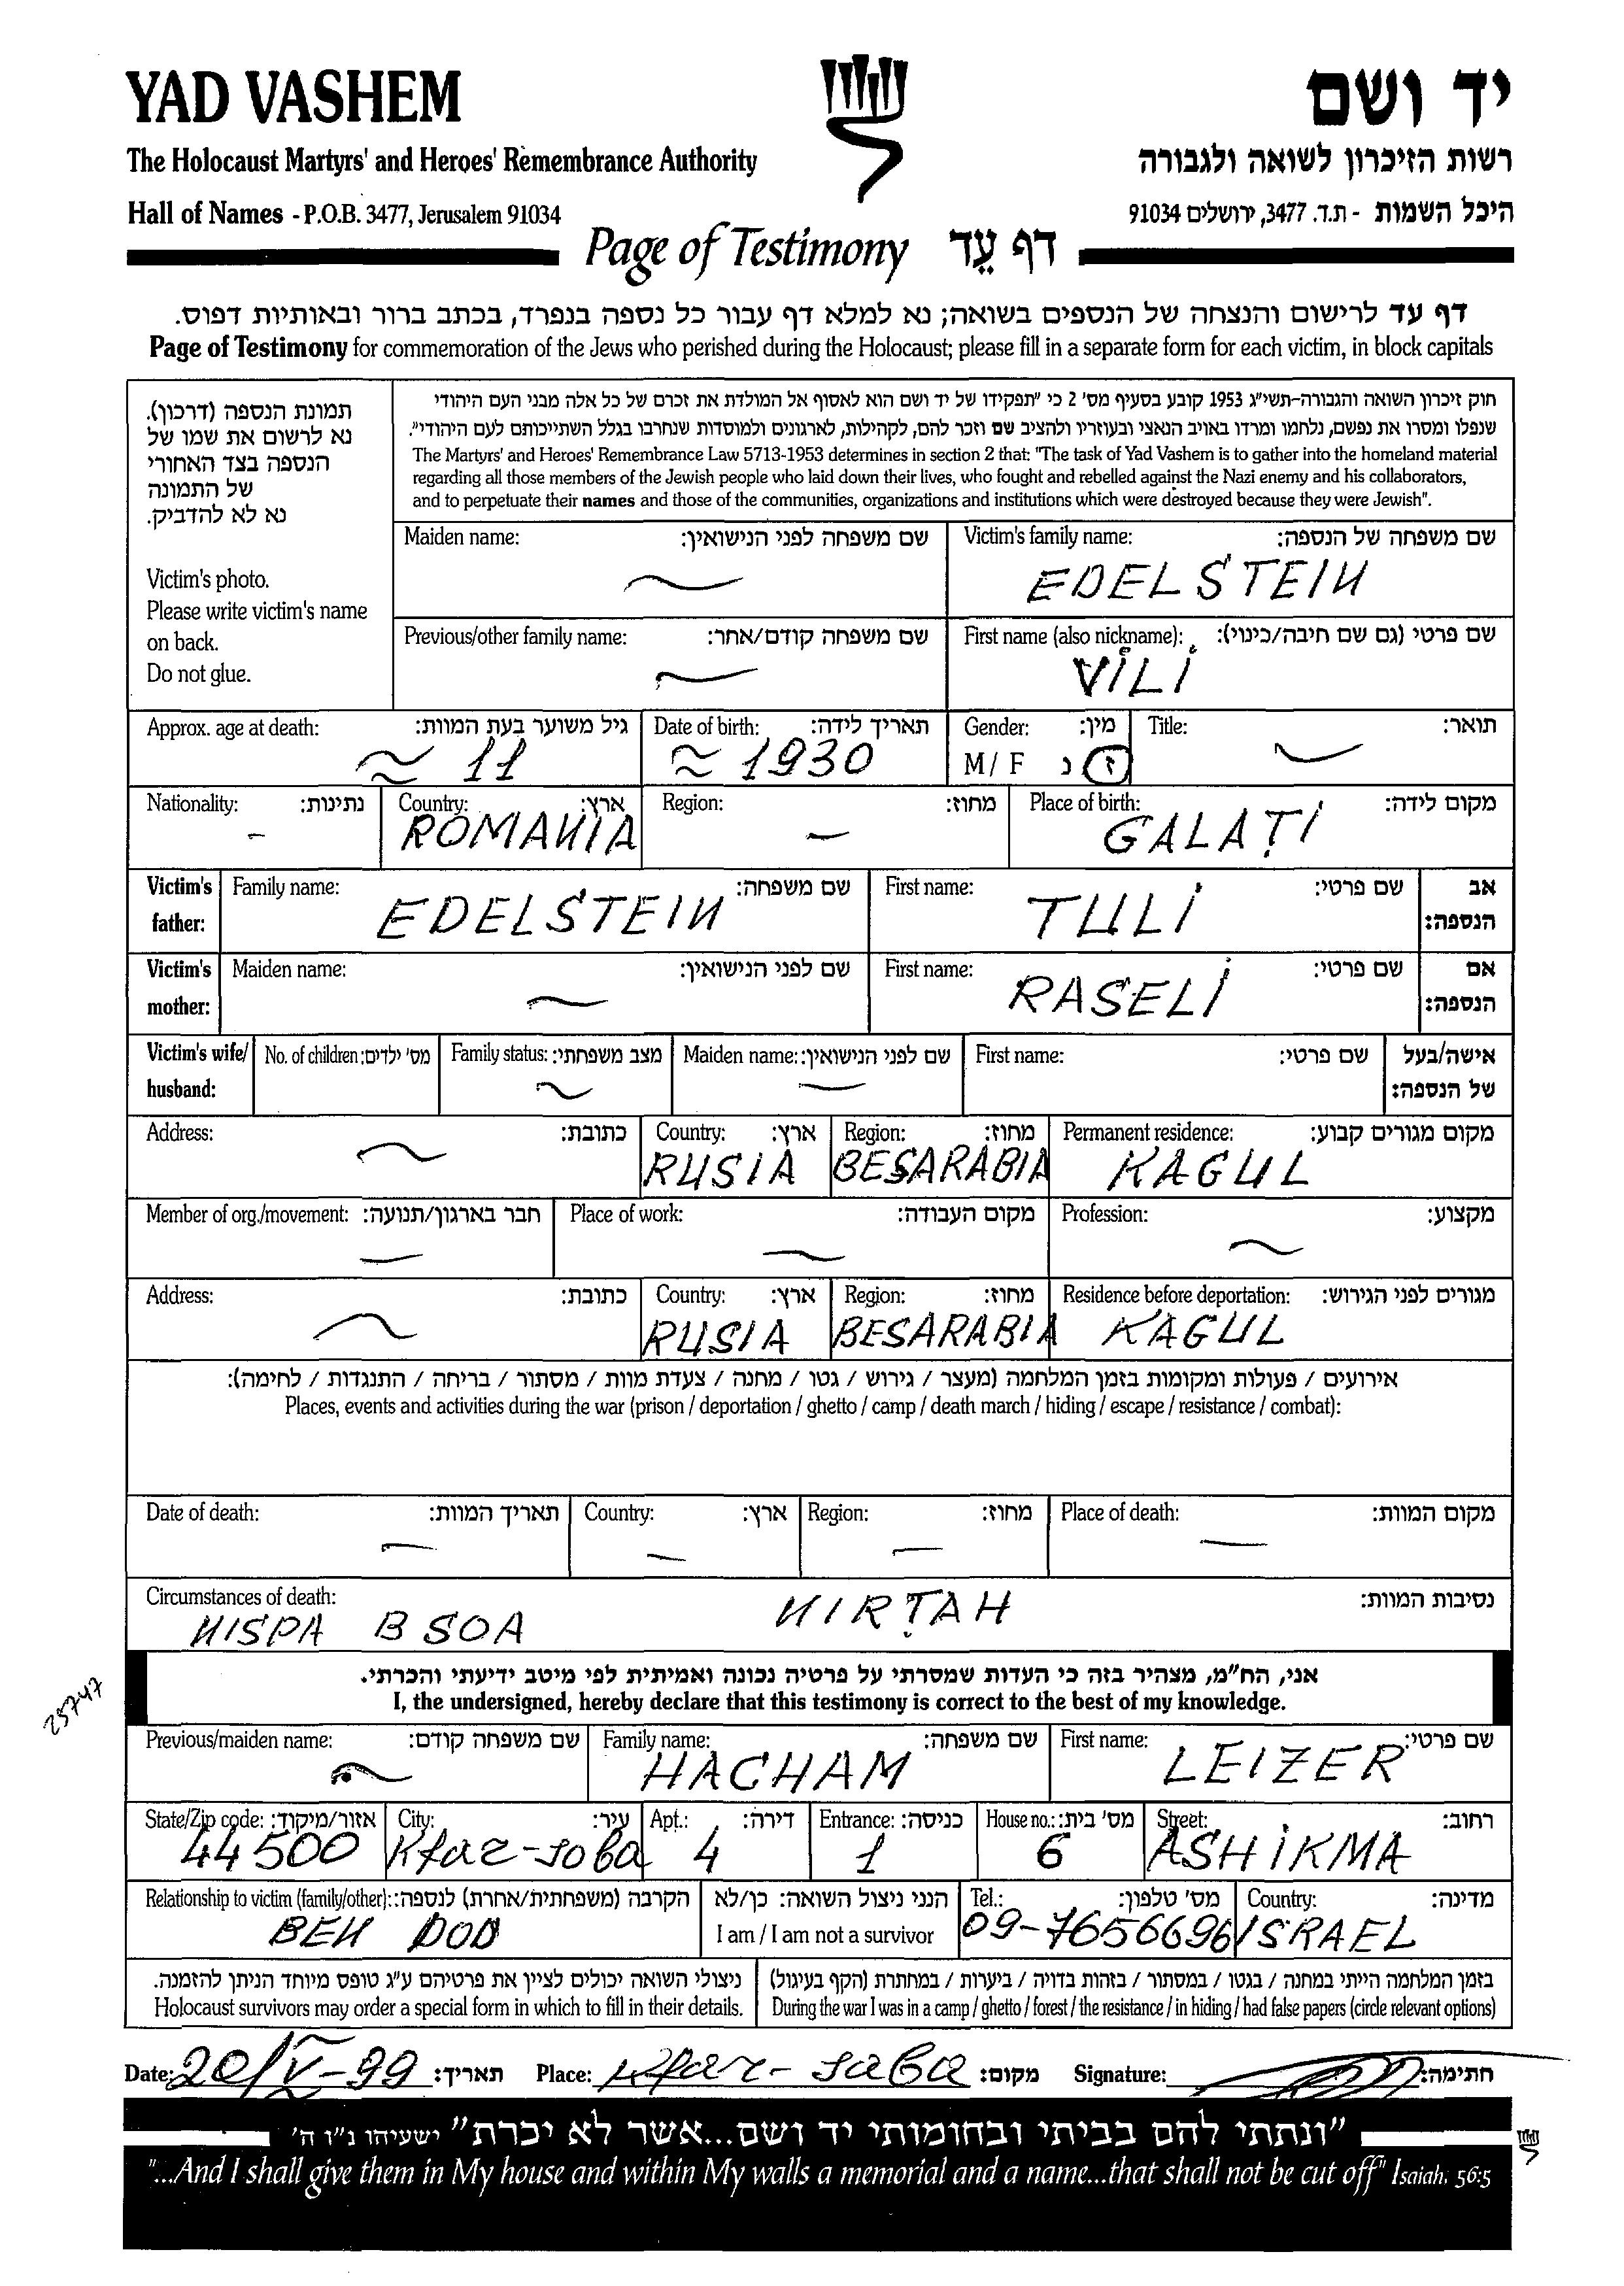 YAD VASHEM
יד ושם
The Holocaust Martyrs' and Heroes' Remembrance Authority
רשות הזיכרון לשואה ולגבורה
Hall of Names - P.O.B. 3477, Jerusalem 91034
היכל השמות - ת.ד. 3477, ירושלים 91034
Page of Testimony דף עֵד
דף עד לרישום והנצחה של הנספים בשואה; נא למלא דף עבור כל נספה בנפרד, בכתב ברור ובאותיות דפוס.
Page of Testimony for commemoration of the Jews who perished during the Holocaust; please fill in a separate form for each victim, in block capitals
תמונת הנספה (דרכון).
נא לרשום את שמו של
הנספה בצד האחורי
של התמונה
נא לא להדביק.
Victim's photo.
Please write victim's name
on back.
Do not glue.
חוק זיכרון השואה והגבורה-תשי"ג 1953 קובע בסעיף מס' 2 כי "תפקידו של יד ושם הוא לאסוף אל המולדת את זכרם של כל אלה מבני העם היהודי
שנפלו ומסרו את נפשם, נלחמו ומרדו באויב הנאצי ובעוזריו ולהציב שם וזכר להם, לקהילות, לארגונים ולמוסדות שנחרבו בגלל השתייכותם לעם היהודי".
The Martyrs' and Heroes' Remembrance Law 5713-1953 determines in section 2 that: "The task of Yad Vashem is to gather into the homeland material
regarding all those members of the Jewish people who laid down their lives, who fought and rebelled against the Nazi enemy and his collaborators,
and to perpetuate their names and those of the communities, organizations and institutions which were destroyed because they were Jewish".
Maiden name: שם משפחה לפני הנישואין:
Victim's family name: שם משפחה של הנספה:
EDELSTEIN
Previous/other family name: שם משפחה קודם/אחר:
First name (also nickname): שם פרטי (גם שם חיבה/כינוי):
VILI
Approx. age at death: גיל משוער בעת המוות:
≈ 11
Date of birth: תאריך לידה:
≈ 1930
Gender: מין:
M / F ז נ
Title: תואר:
Nationality: נתינות:
-
Country: ארץ:
ROMANIA
Region: מחוז:
Place of birth: מקום לידה:
GALAȚI
Victim's father: Family name: שם משפחה:
EDELSTEIN
First name: שם פרטי:
TULI
אב הנספה:
Victim's mother: Maiden name: שם לפני הנישואין:
First name: שם פרטי:
RASELI
אם הנספה:
Victim's wife/ husband: No. of children: מס' ילדים: Family status: מצב משפחתי: Maiden name: שם לפני הנישואין: First name: שם פרטי: אישה/בעל של הנספה:
Address: כתובת:
Country: ארץ:
RUSIA
Region: מחוז:
BESARABIA
Permanent residence: מקום מגורים קבוע:
KAGUL
Member of org./movement: חבר בארגון/תנועה: Place of work: מקום העבודה: Profession: מקצוע:
Address: כתובת:
Country: ארץ:
RUSIA
Region: מחוז:
BESARABIA
Residence before deportation: מגורים לפני הגירוש:
KAGUL
אירועים / פעולות ומקומות בזמן המלחמה (מעצר / גירוש / גטו / מחנה / צעדת מוות / מסתור / בריחה / התנגדות / לחימה):
Places, events and activities during the war (prison / deportation / ghetto / camp / death march / hiding / escape / resistance / combat):
Date of death: תאריך המוות: Country: ארץ: Region: מחוז: Place of death: מקום המוות:
Circumstances of death: נסיבות המוות:
NISPA B SOA NIRȚAH
אני, הח"מ, מצהיר בזה כי העדות שמסרתי על פרטיה נכונה ואמיתית לפי מיטב ידיעתי והכרתי.
I, the undersigned, hereby declare that this testimony is correct to the best of my knowledge.
25747
Previous/maiden name: שם משפחה קודם:
Family name: שם משפחה:
HACHAM
First name: שם פרטי:
LEIZER
State/Zip code: אזור/מיקוד:
44500
City: עיר:
Kfar-saba
Apt.: דירה:
4
Entrance: כניסה:
1
House no.: מס' בית:
6
Street: רחוב:
ASHIKMA
Relationship to victim (family/other): הקרבה (משפחתית/אחרת) לנספה:
BEN DOD
הנני ניצול השואה: כן/לא
I am / I am not a survivor
Tel.: מס' טלפון:
09-7656696
Country: מדינה:
ISRAEL
ניצולי השואה יכולים לציין את פרטיהם ע"ג טופס מיוחד הניתן להזמנה.
Holocaust survivors may order a special form in which to fill in their details.
בזמן המלחמה הייתי במחנה / בגטו / במסתור / בזהות בדויה / ביערות / במחתרת (הקף בעיגול)
During the war I was in a camp / ghetto / forest / the resistance / in hiding / had false papers (circle relevant options)
Date: 20/V-99 תאריך: Place: Kfar-saba מקום: Signature: חתימה:
"ונתתי להם בביתי ובחומותי יד ושם...אשר לא יכרת" ישעיהו נ"ו ה'
"...And I shall give them in My house and within My walls a memorial and a name...that shall not be cut off" Isaiah, 56:5